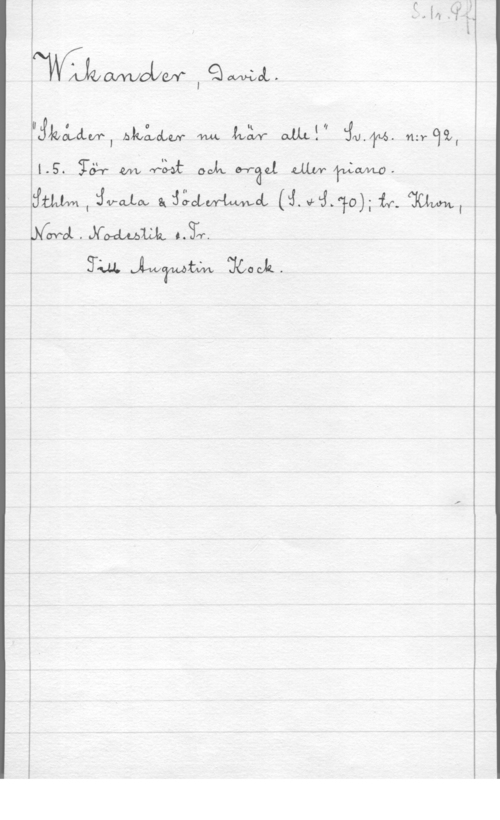 S. tr. Pf.
Wikander, David.
"Skåder, skåder nu här alle!" Sv. ps. n:r 92,
1. 5. För en röst och orgel eller piano.
Sthlm, Svala & Söderlund (S. & S. 70); tr. Khvn,
Nord. Nodestik. o. Tr.
Till Augustin Kock.